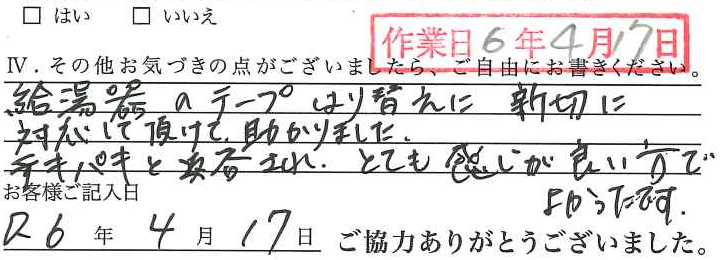 □ はい □ いいえ
作業日 6年4月17日
Ⅳ．その他お気づきの点がございましたら、ご自由にお書きください。
給湯器のテープはり替えに 新切に
対応して頂けて、助かりました。
テキパキと され、とても感じが良い方で
よかったです.
お客様ご記入日
R6年4月17日 ご協力ありがとうございました。